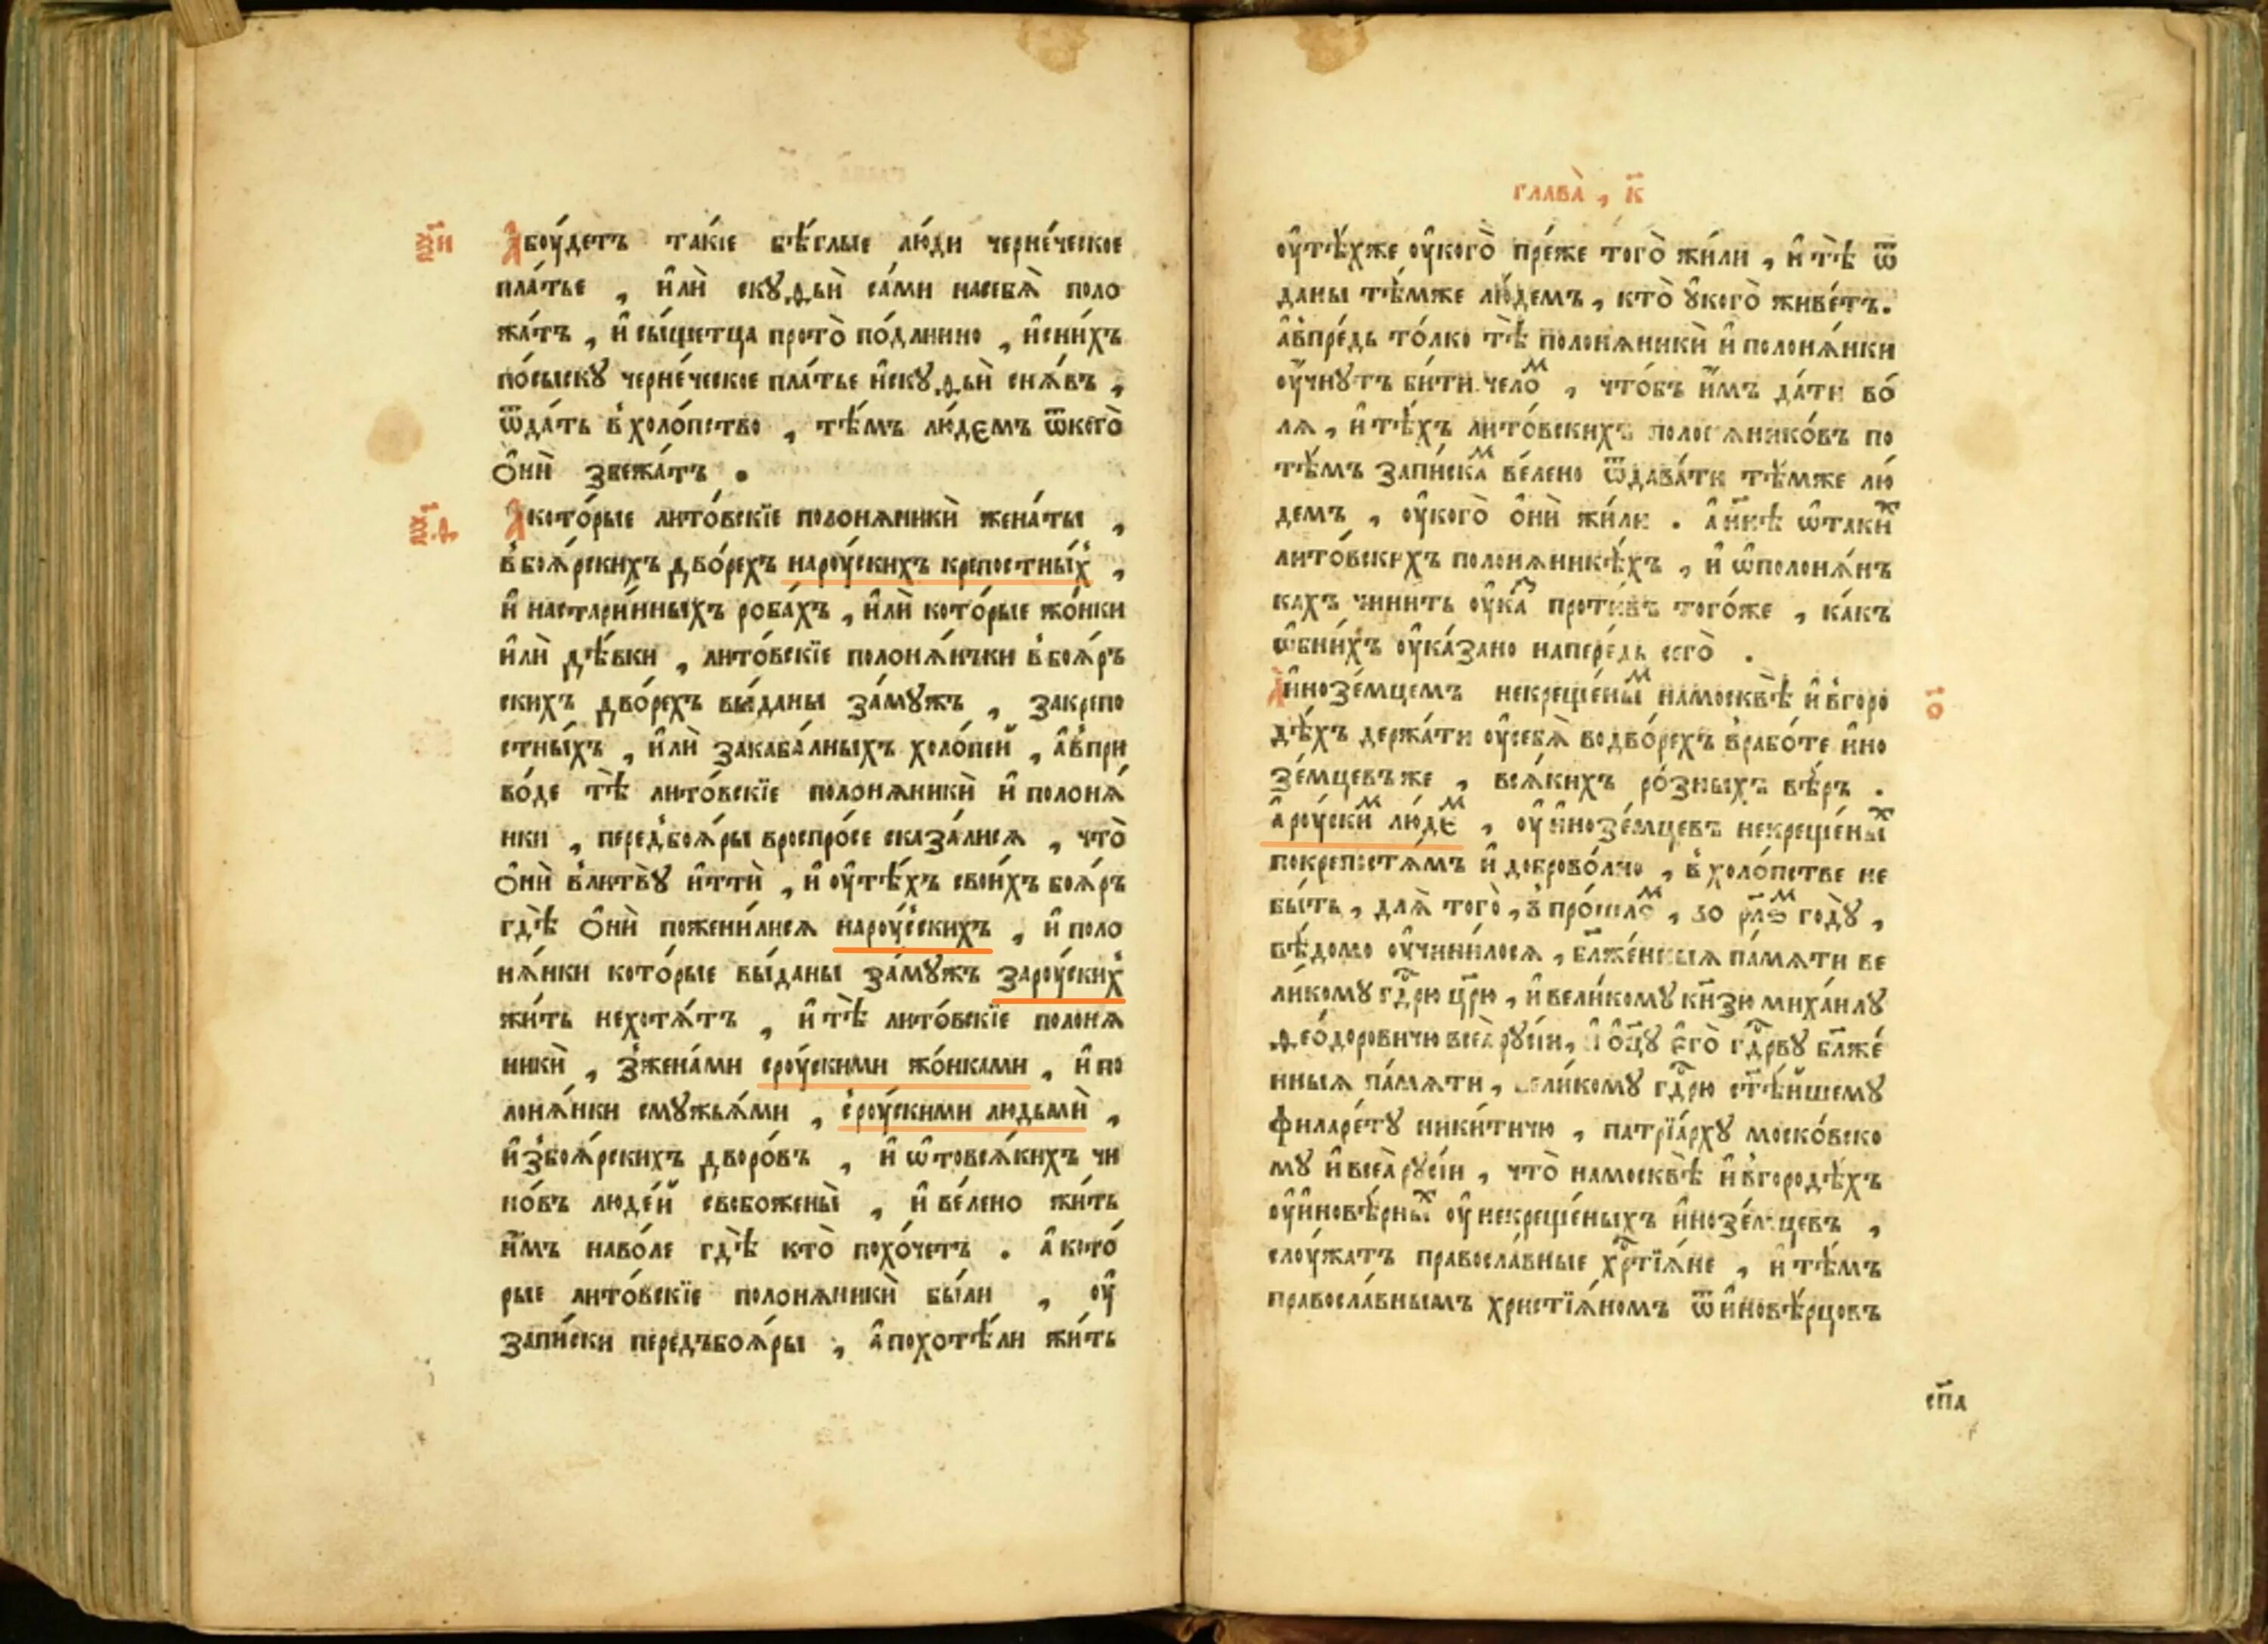 ѯ҃н
А҆боу́детъ такі́е бѣ́глые лю́ди черне́ческое
пла́тье , и҆лѝ скуѳьи̑ са́ми насебѧ̀ поло
жа́тъ , и҆ сы́щетца прото̀ по́длинно , и҆сни́хъ
по́сыску черне́ческое пла́тье и҆скуѳьи̑ снѧ́въ ,
ѿда́ть в҆холо́пство , тѣ́мъ лю́демъ ѿкого̀
ѻ҆нѝ збежа́тъ .
ѯ҃ѳ
А҆кото́рые лито́вскїе полонѧникѝ жена́ты ,
в҆боѧ́рскихъ дво́рехъ нароу́скихъ крепостны́х ,
и҆ настари́нныхъ роба́хъ , и҆лѝ кото́рые жо́нки
и҆лѝ дѣ́вки , лито́вскїе полонѧ́нъки в҆боѧ́ръ
скихъ дво́рехъ вы́даны за́мужъ , закрепо
стны́хъ , и҆лѝ закаба́лныхъ холо́пей , а҆в҆при
во́де тѣ̀ лито́вскїе полонѧникѝ и҆ полонѧ́
нки , перед҆боѧ́ры вроспро́се сказа́лисѧ , что̀
ѻ҆нѝ в҆литвꙋ̀ и҆ттѝ , и҆ оу҆тѣ́хъ свои́хъ боѧ́ръ
гдѣ̀ ѻ҆нѝ пожени́лисѧ нароу́сскихъ , и҆ поло
нѧ́нки кото́рые вы́даны за́мужъ зароу́ских
жи́ть нехотѧ́тъ , и҆ тѣ̀ лито́вскїе полонѧ
никѝ , з҆жена́ми сроу́скими жо́нками , и҆ по
лонѧ́нки смужьѧ́ми , с҆роу́скими людьмѝ ,
и҆з҆боѧ́рскихъ дворо́въ , и҆ ѡ҆товсѧ́кихъ чи
но́въ люде́й свобожены̀ , и҆ ве́лено жи́ть
и҆̀мъ наво́ле гдѣ̀ кто̀ похо́четъ . а҆ кото́
рые лито́вскїе полонѧникѝ бы́ли , оу҆
запи́ски передъбоѧ́ры , а҆похотѣ́ли жи́ть
глава̀ , к҃
оу҆тѣ́хже оу҆кого̀ пре́же того̀ жи́ли , и҆ тѣ̀ ѿ
даны тѣ́мже лю́демъ , кто̀ ꙋ҆кого̀ живе́тъ .
а҆впре́дь то́лко тѣ̀ полонѧникѝ и҆ полонѧ́нки
оу҆чнꙋтъ би́ти чело́м , что́бъ и҆̀мъ да́ти во́
лѧ , и҆ тѣ́хъ лито́вскихъ полонѧнико́въ по
тѣ́мъ запи́скам ве́лено ѿдава́ти тѣ́мже лю́
демъ , оу҆кого̀ ѻ҆нѝ жи́ли . а҆ нн҃ѣ ѡ҆таки́х
лито́вскихъ полонѧникѣ́хъ , и҆ ѡ҆полонѧ́нъ
кахъ чини́ть оу҆ка́з про́тивъ того́же , ка́къ
ѡ҆бни́хъ оу҆ка́зано напере́дь сего̀ .
о҃
А҆иноз́емцемъ некреще́ным намосквѣ̀ и҆ в҆горо
дѣ́хъ держа́ти оу҆себѧ̀ водво́рехъ врабо́те и҆но
зе́мцевъже , всѧ́кихъ ро́зныхъ вѣ́ръ .
а҆роу́ским лю́дем , оу҆ и҆нозе́мцевъ некреще́ных
покрепостѧмъ и҆ доброво́лно , в҆холо́пстве не
бы́ть , длѧ̀ того̀ , в҆про́шлом , во р҃лѕ҃м годꙋ̀ ,
вѣ́домо оу҆чини́лосѧ , бл҃же́нныѧ па́мѧти ве
ли́кому гд҃рю цр҃ю , и҆ вели́кому кн҃зю миха́илꙋ
ѳео́доровичю всеѧ̀ рꙋсі́и , и҆ ѻ҆ц҃ꙋ є҆го̀ гд҃рвꙋ бл҃же́
нныѧ па́мѧти , вели́кому гд҃рю ст҃ѣ́йшему
филаре́тꙋ ники́тичю , патрїа́рхꙋ моско́вско
мꙋ и҆ всеѧ̀ рꙋсі́и , что̀ намосквѣ̀ и҆ в҆городѣ́хъ
оу҆и҆новѣ́рных оу҆ некреще́ныхъ и҆нозе́мцевъ ,
слоу́жатъ правосла́вные хрⷭ҇тїѧ́не , и҆ тѣ́мъ
правосла́внымъ христїѧ́номъ ѿи҆новѣ́рцовъ
сп҃а